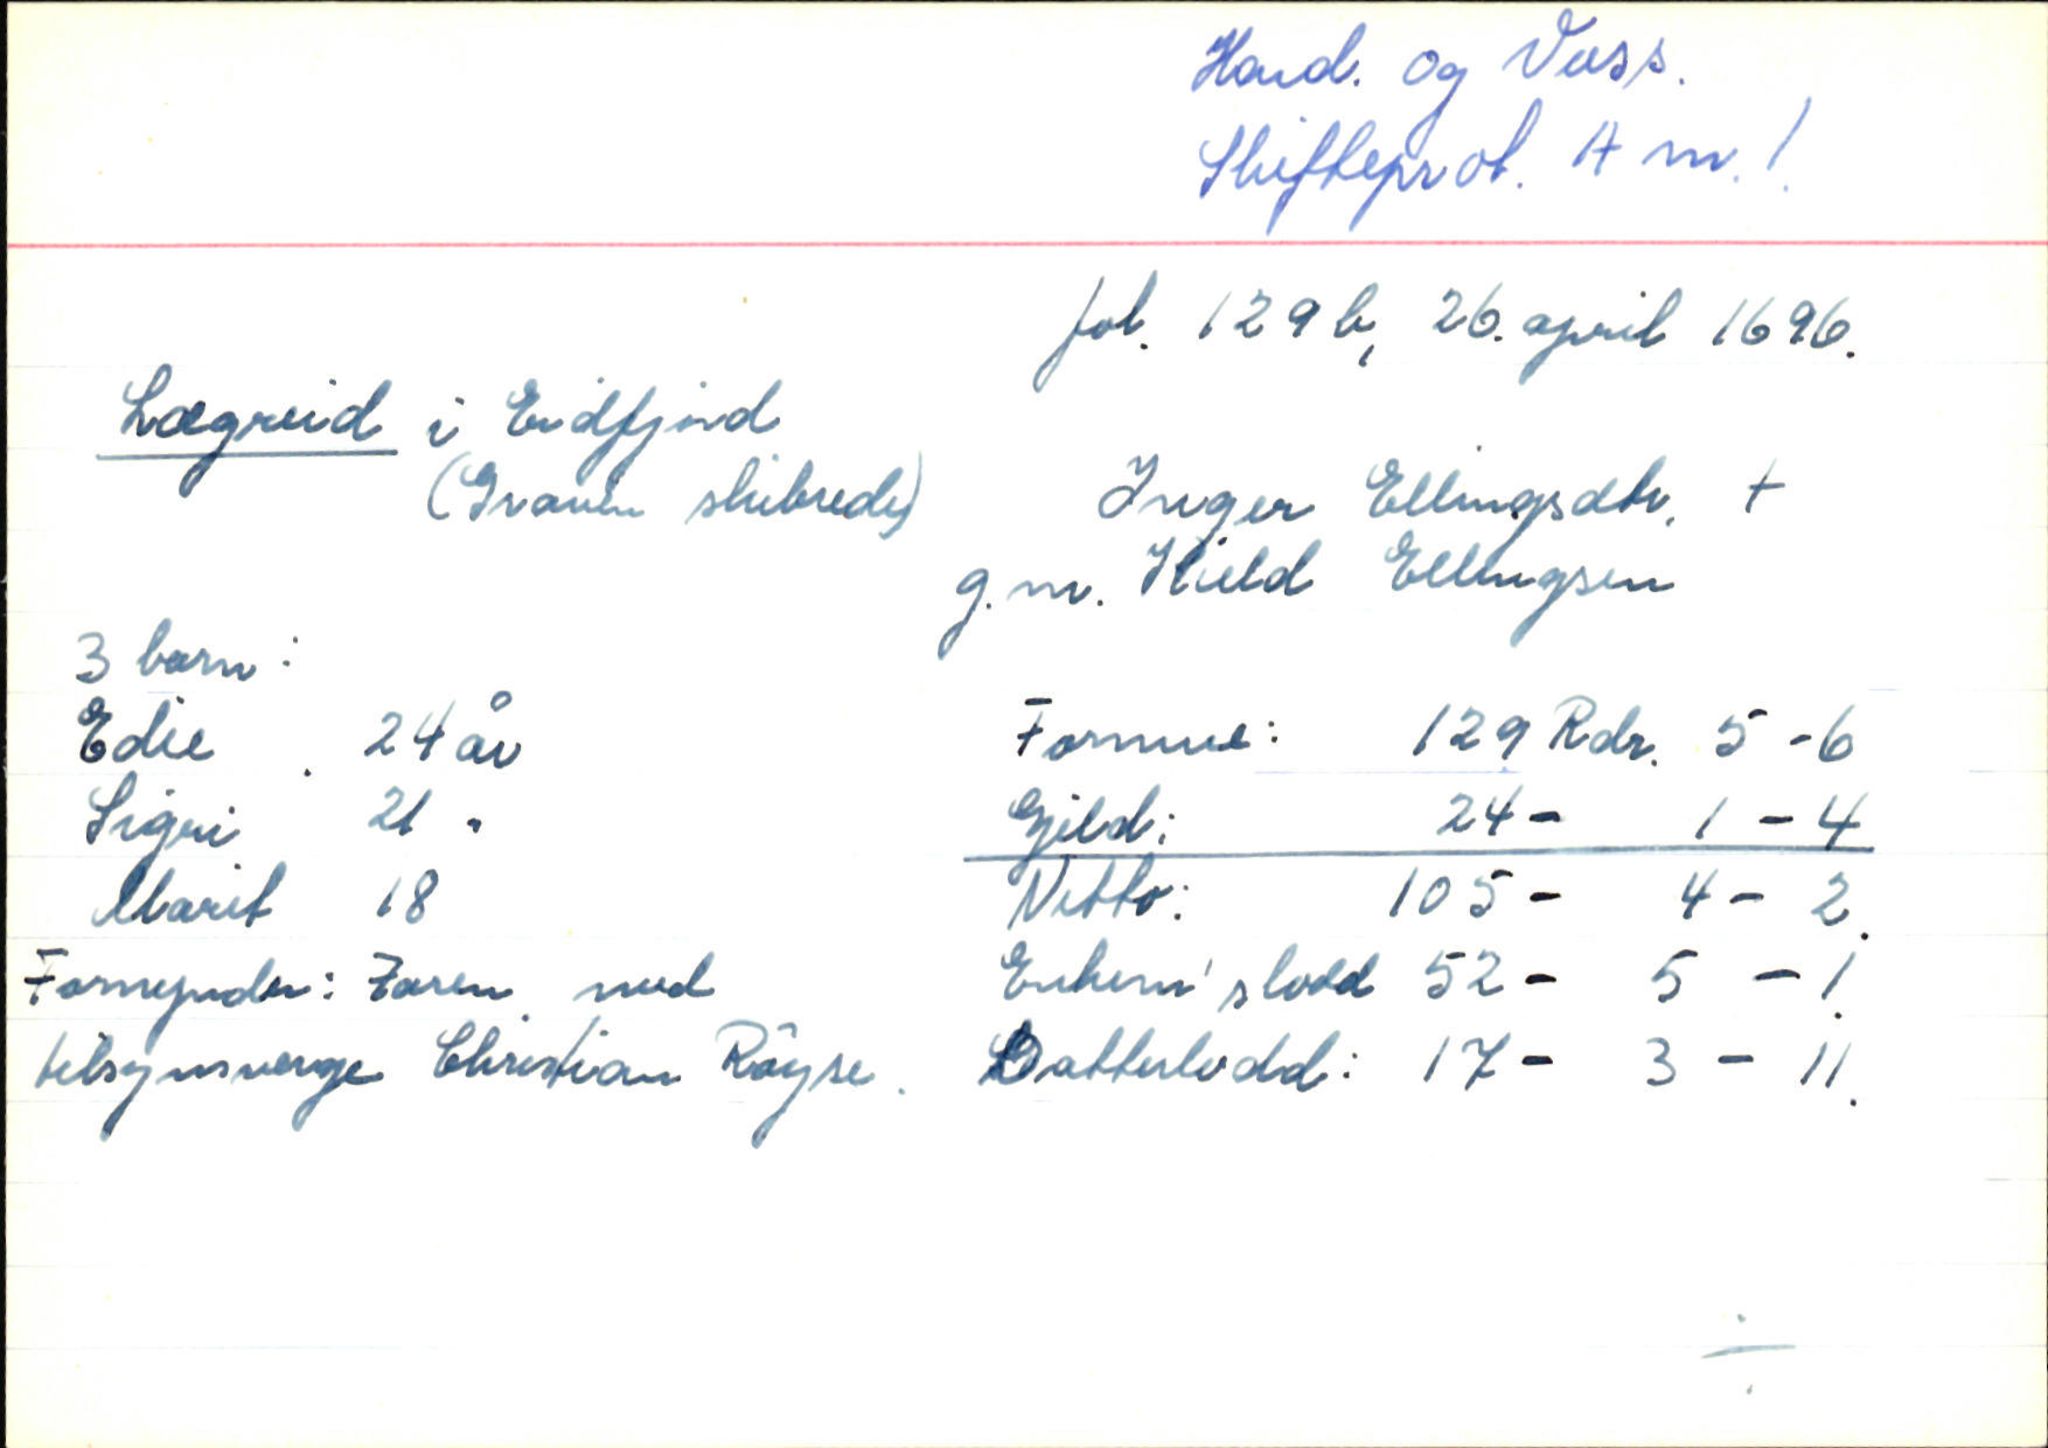 Hard. og Voss.
Skifteprot. A nr. 1.
fol. 129 b, 26. april 1696.
Lægreid i Eidfjord
(Graven skibrede)
Inger Ellingsdtr. +
g. m. Kield Ellingsen
3 barn:
Edie 24 år
Sigri 21 "
Marit 18
Formynder: Faren med
tilsynsverge Christian Röyse.
Formue: 129 Rdr. 5 - 6
Gjeld: 24 - 1 - 4
Netto: 105 - 4 - 2.
Enkem' slodd 52 - 5 - 1.
Datterlodd: 17 - 3 - 11.
÷